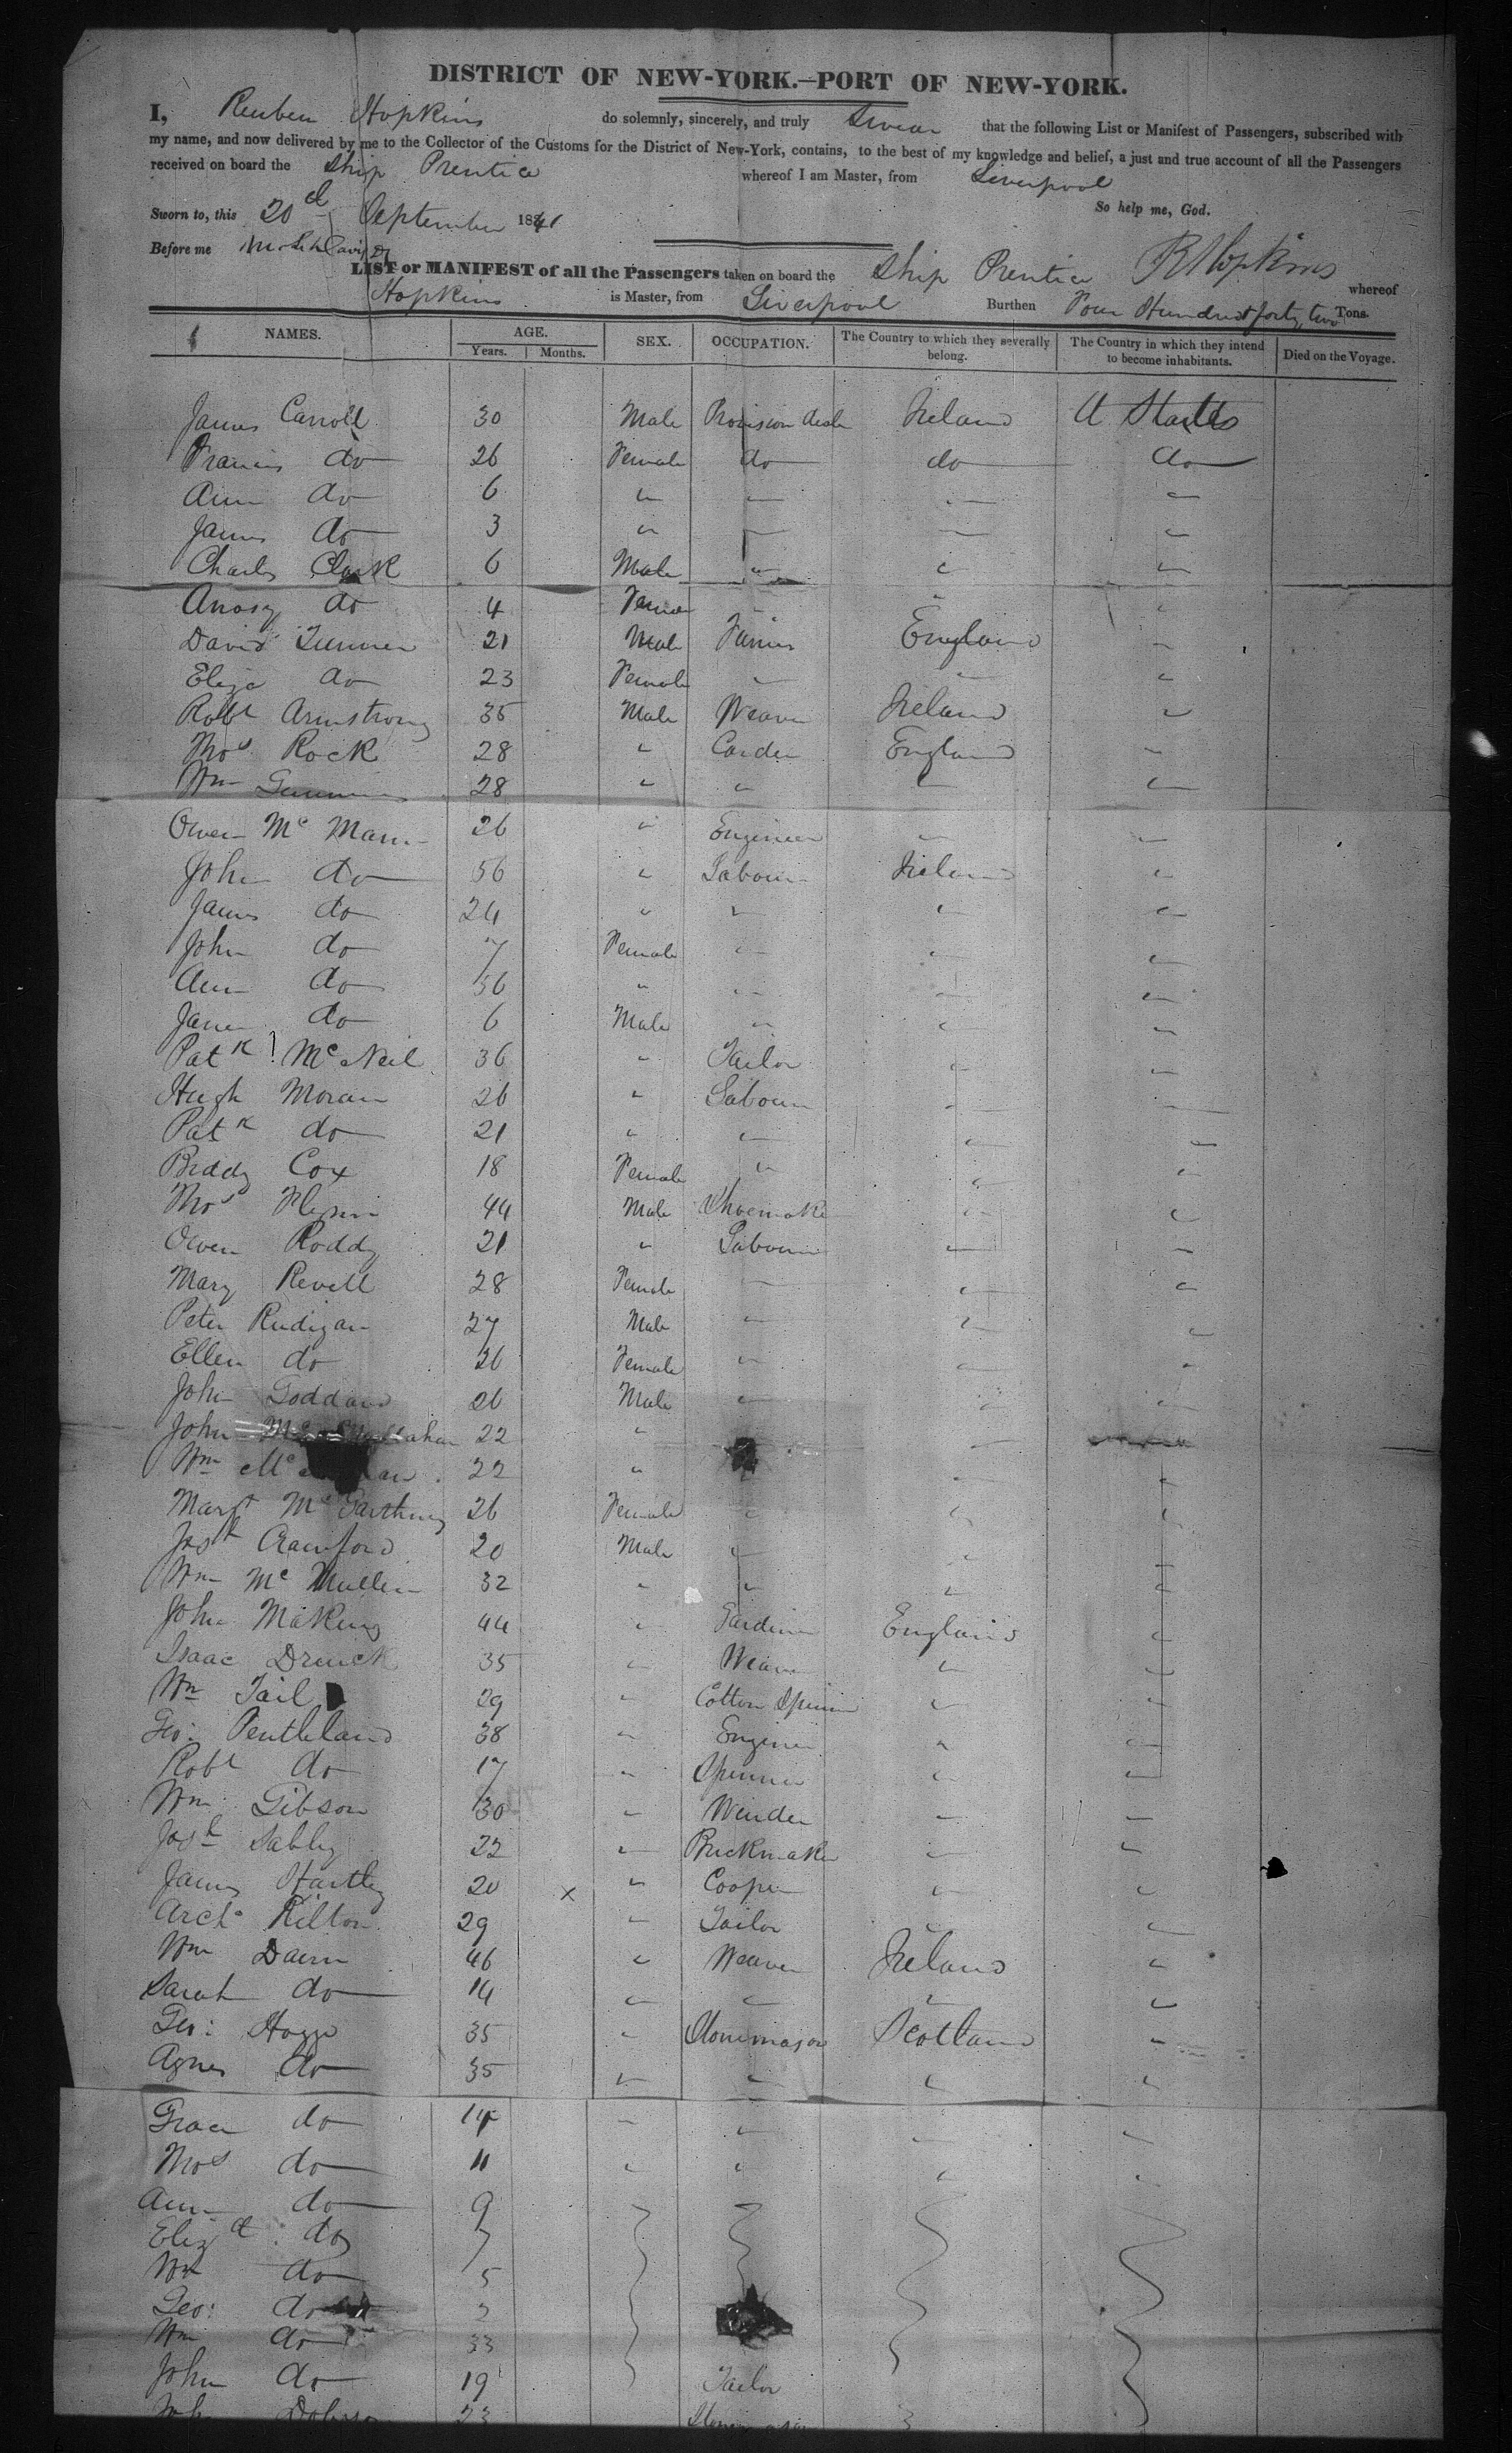 DISTRICT OF NEW-YORK.—PORT OF NEW-YORK.
I, Reuben Hopkins do solemnly, sincerely, and truly Swear that the following List or Manifest of Passengers, subscribed with
my name, and now delivered by me to the Collector of the Customs for the District of New-York, contains, to the best of my knowledge and belief, a just and true account of all the Passengers
received on board the Ship Prentice whereof I am Master, from Liverpool
So help me, God.
Sworn to, this 20d September 1841
Before me
R Hopkins
LIST or MANIFEST of all the Passengers taken on board the Ship Prentice whereof
Hopkins is Master, from Liverpool Burthen Four Hundred forty two Tons.
NAMES. AGE. SEX. OCCUPATION. The Country to which they severally belong. The Country in which they intend to become inhabitants. Died on the Voyage.
Years. Months.
James Carroll 30 Male Provision deale Ireland U States
Francis do 26 Female do do do
Ann do 6 " " " "
James do 3 " " " "
Charles Clark 6 Male " " "
do 4 Female " " "
David Turner 21 Male Farmer England "
Eliza do 23 Female " " "
Robt Armstrong 35 Male Weaver Ireland "
Thos Rock 28 " Carder England "
Wm 28 " " " "
Owen Mc Mann 26 " Engineer " "
John do 56 " Labour Ireland "
James do 24 " " " "
John do 7 Female " " "
Ann do 56 " " " "
Jane do 6 Male " " "
Patk Mc Neil 36 " Tailor " "
Hugh Moran 26 " Labour " "
Patk do 21 " " " "
Biddy Cox 18 Female " " "
Thos Flynn 44 Male Shoemaker " "
Owen Roddy 21 " Labour " "
Mary Revell 28 Female " " "
Peter Rudigan 27 Male " " "
Ellen do 26 Female " " "
John Goddard 26 Male " " "
John 22 " " "
Wm Mc 22 " " "
Margt Mc 26 Female " " "
Josh Crawford 20 Male " " "
Wm Mc Mullen 32 " " " "
John Making 44 " Gardiner England "
Isaac 35 " Weaver " "
Wm Tail 29 " Cotton Spinner " "
Geo: Pentheland 38 " Engineer " "
Robt do 17 " Spinner " "
Wm Gibson 30 " Winder " "
Josh Sabby 22 " Brickmaker " "
James Hartley 20 x " Cooper " "
Archd Kilton 29 " Tailor " "
Wm Dairn 46 " Weaver Ireland "
Sarah do 14 " " " "
Geo: Hogg 35 " Stonemason Scotland "
Agnes do 35 " " " "
Grace do 14 " " " "
Thos do 11 " " " "
Ann do 9
Elizth do 7
Wm do 5
Geo: do
Wm do 33
John do 19 Tailor
23